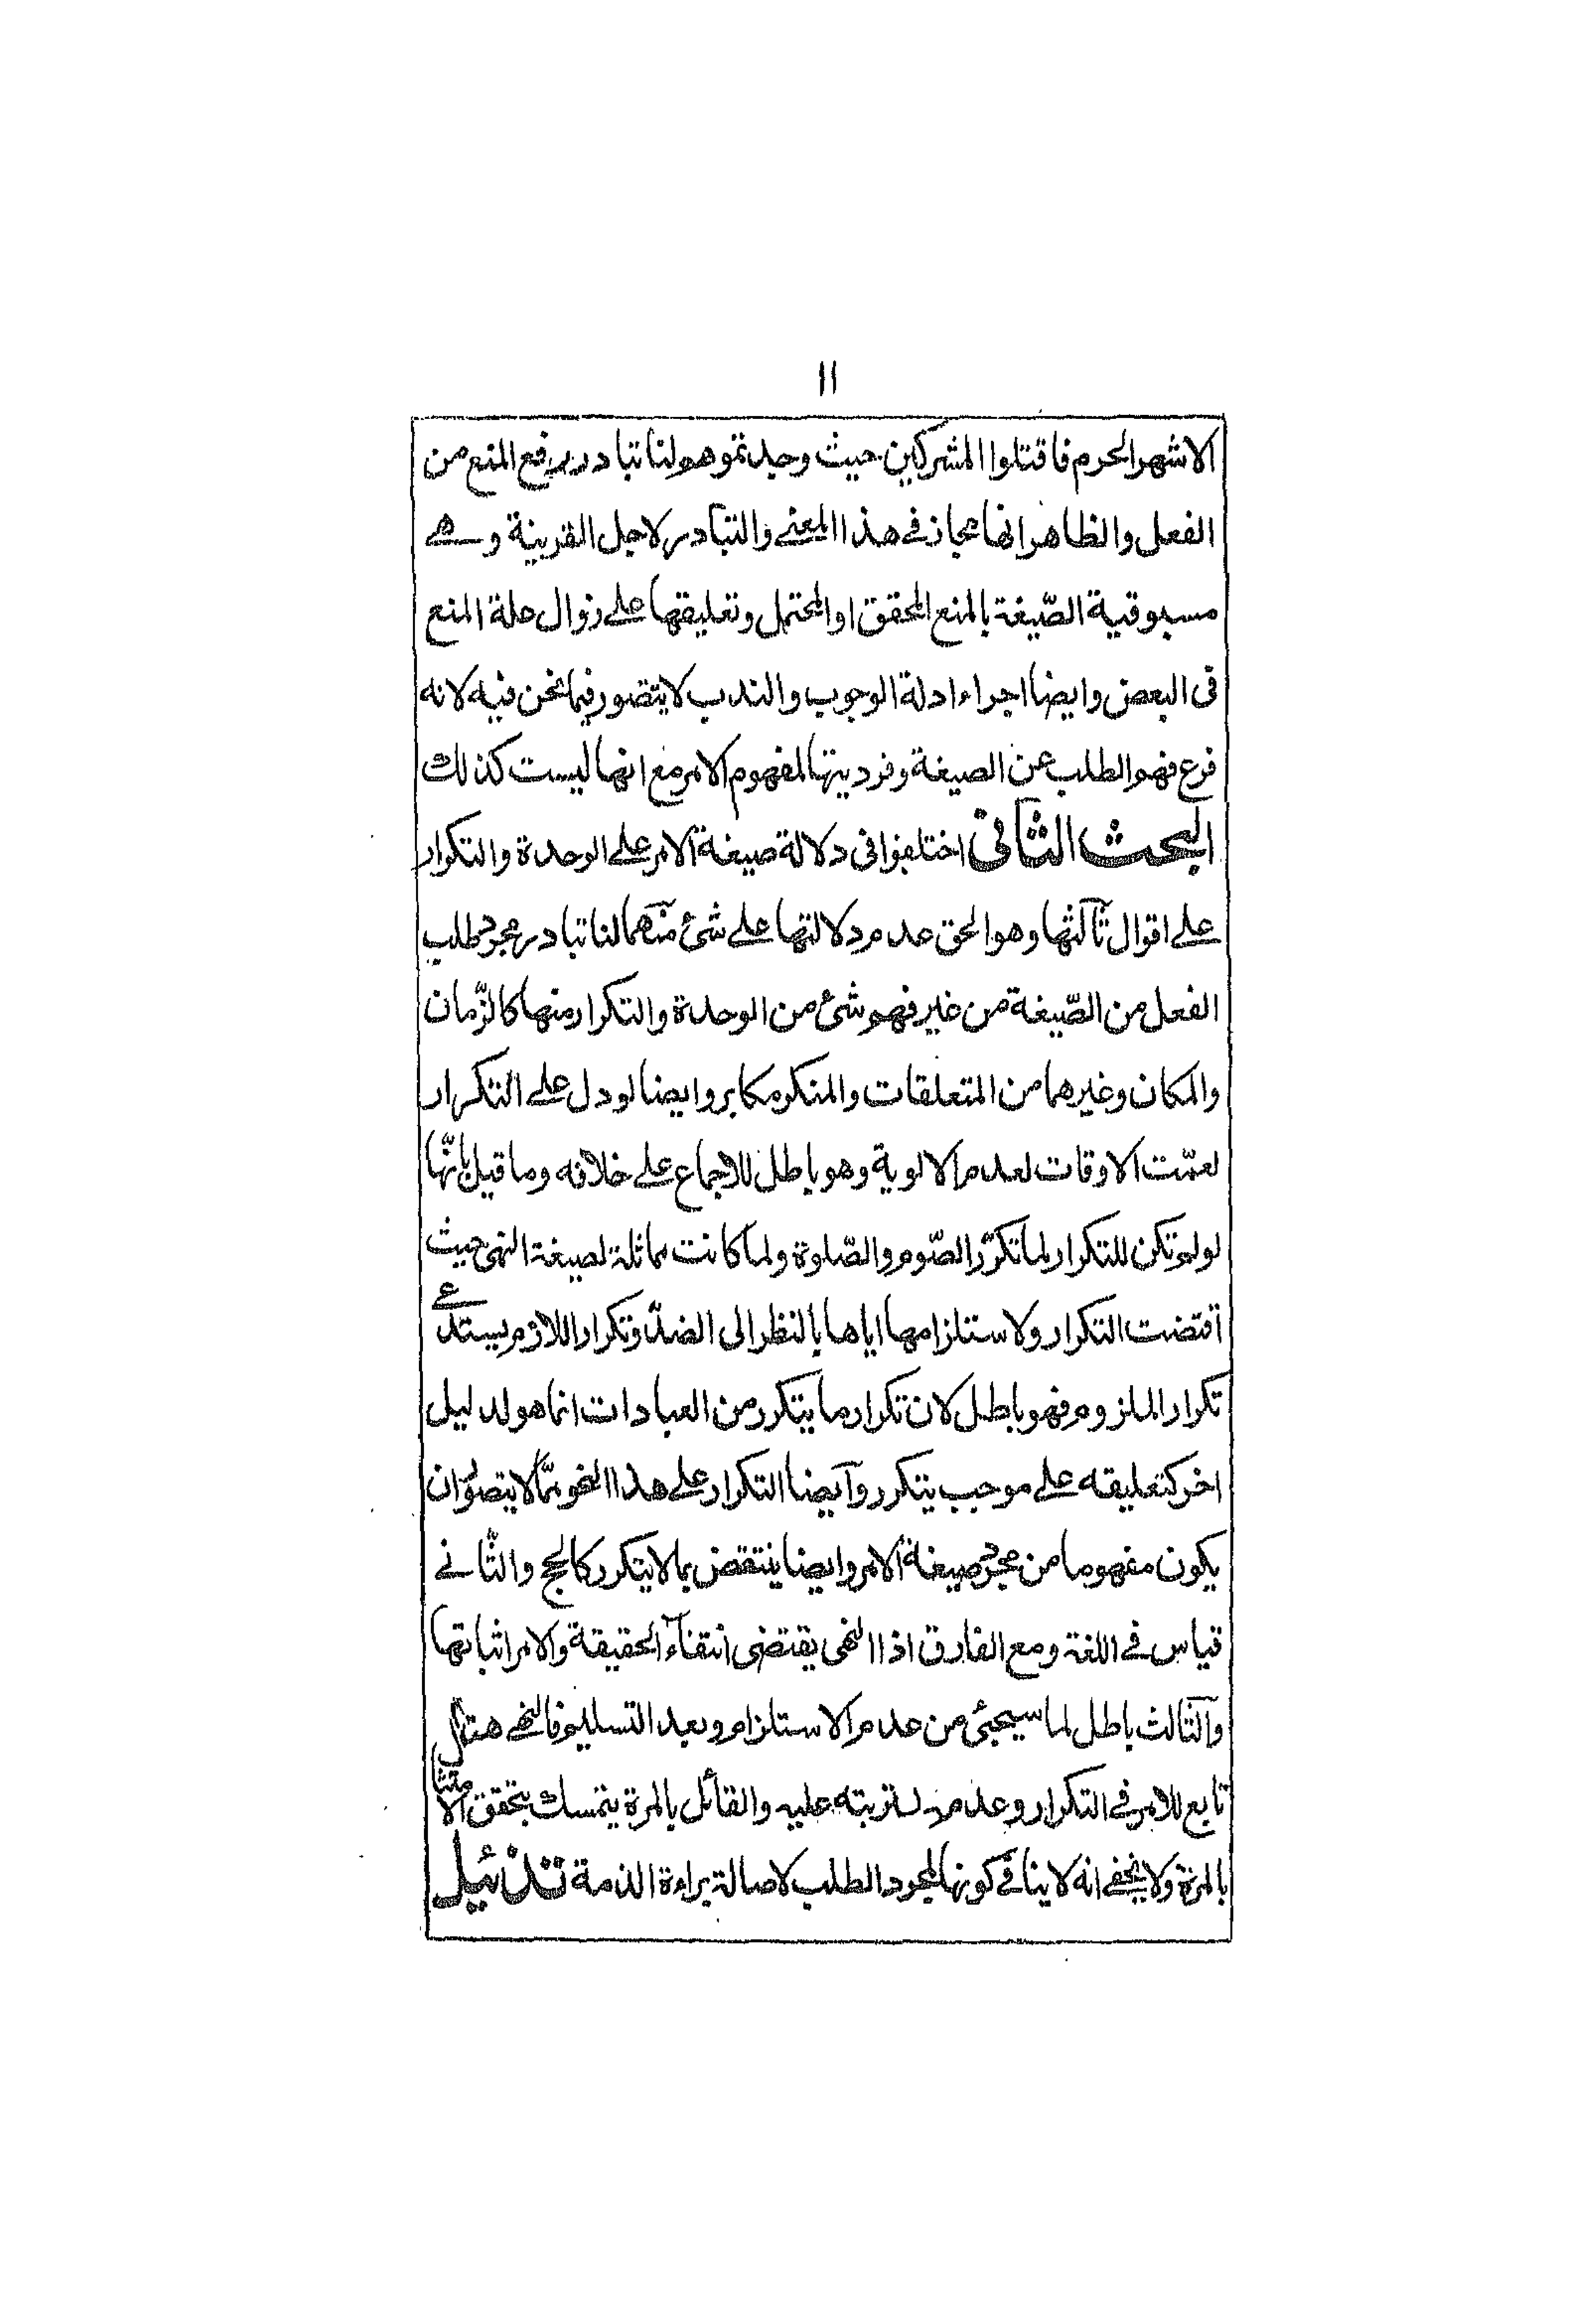 ١١
الاشهر الحرم فاقتلوا المشركين حيث وجدتموهم لنا تبادر رفع المنع من
الفعل والظاهر انها مجاز في هذا المعنى والتبادر لاجل القرينة وهے
مسبوقية الصّيغة بالمنع المحقق او المحتمل وتعليقها علے زوال علة المنع
فى البعض وايضا اجراء ادلة الوجوب والندب لا يتصور فيما نحن فيه لانه
فرع فهم الطلب عن الصيغة وفرديتها لمفهوم الامر مع انها ليست كذلك
البحث الثانى اختلفوا فى دلالة صيغة الامر علے الوحدة والتكرار
علے اقوال ثالثها وهو الحق عدم دلالتها علے شئ منهما لنا تبادر مجرد طلب
الفعل من الصّيغة من غير فهم شئ من الوحدة والتكرار منها كالزّمان
والمكان وغيرهما من المتعلقات والمنكر مكابر وايضا لو دل علے التكرار
لعمّت الاوقات لعدم الالوية وهو باطل للاجماع علے خلافه وما قيل بانّها
لو لم تكن للتكرار لما تكرّر الصّوم والصّلوة ولما كانت مماثلة لصيغة النهى حيث
اقتضت التكرار ولاستلزامها اياها بالنظر الى الضدّ وتكرار اللازم يستدعے
تكرار الملزوم فهو باطل لان تكرار ما يتكرر من العبادات انما هو لدليل
اخر كتعليقه علے موجب يتكرر وايضا التكرار علے هذا النحو ممّا لا يتصوّر ان
يكون مفهوما من مجرد صيغة الامر وايضا ينتقض بما لا يتكرر كالحج والثّانے
قياس فے اللغة ومع الفارق اذ النهى يقتضى انتفاء الحقيقة والامر اثباتها
والثالث باطل لما سيجئ من عدم الاستلزام وبعد التسليم فالنهے هنا
تابع للامر فے التكرار وعدمه لترتبه عليه والقائل بالمرة يتمسك بتحقق الامتثال
بالمرّة ولا يخفے انه لا ينافے كونها لمجرد الطلب لاصالة براءة الذمة تذئيل